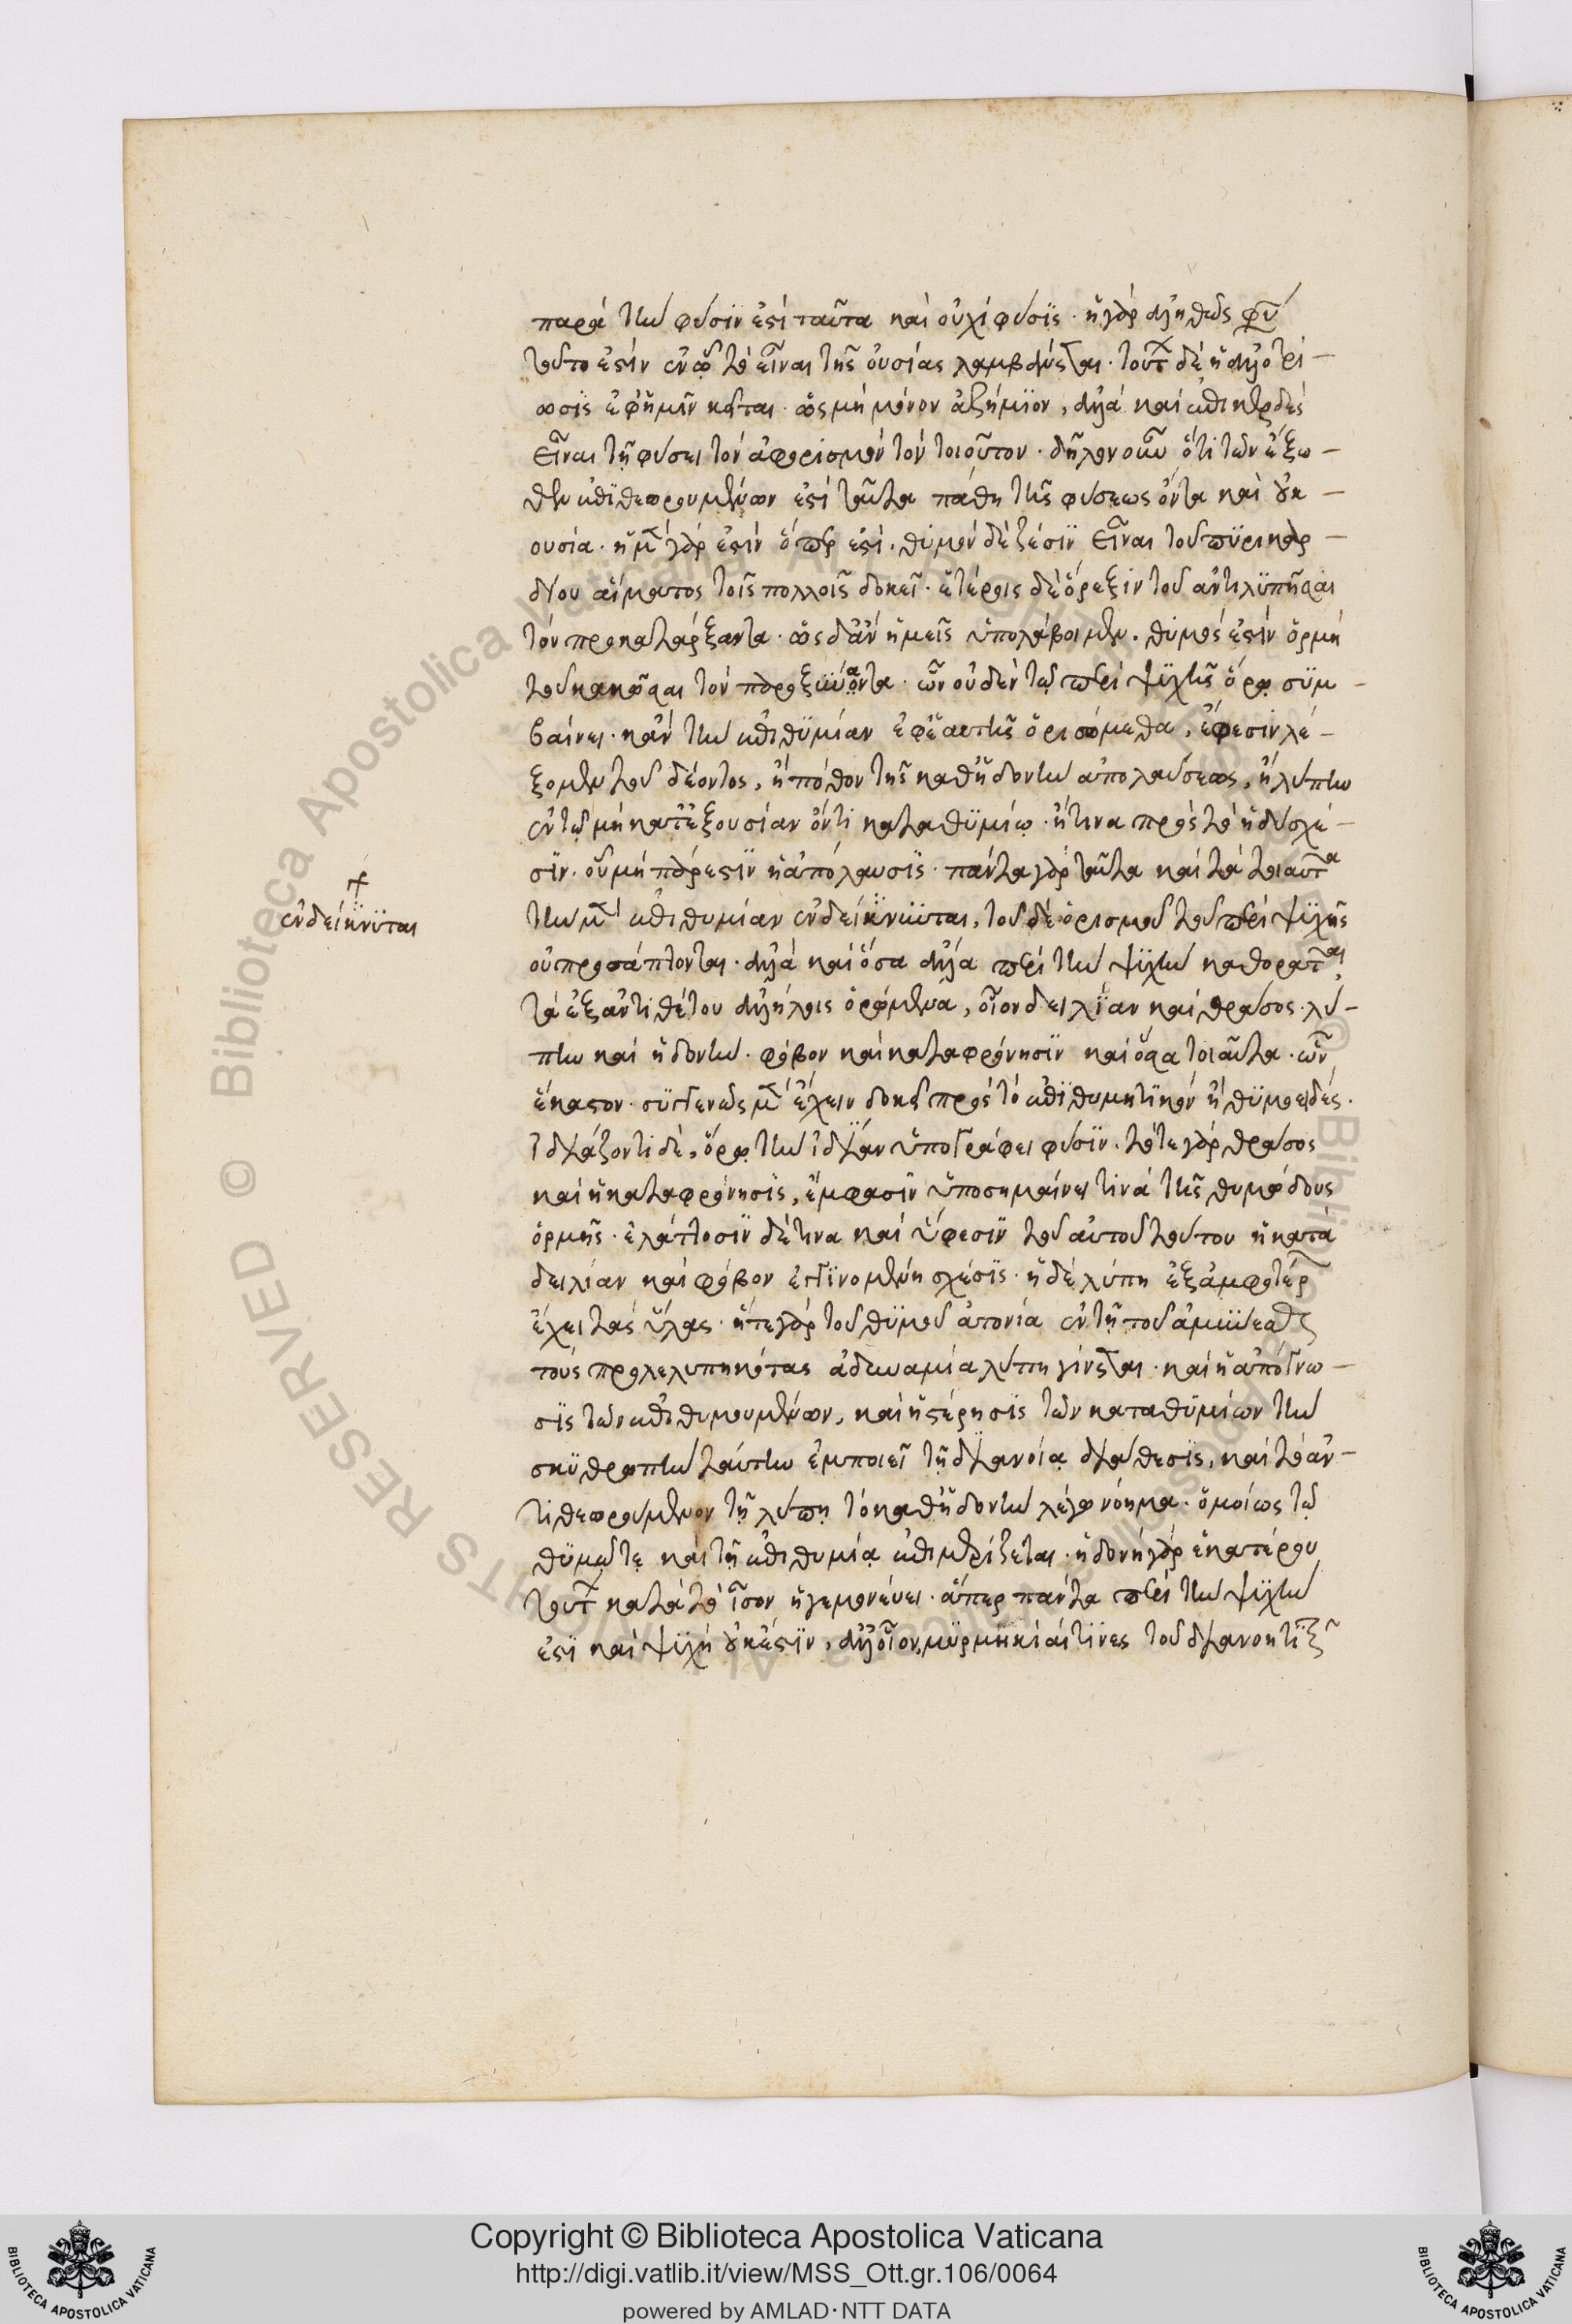 παρὰ τὴν φύσϊν ἐστὶ ταῦτα καὶ οὐχὶ φύσϊς · ἡ γὰρ ἀληθῶς φύσις
τοῦτο ἐστὶν ἐν ᾧ τὸ εἶναι τῆς οὐσίας λαμβάνεται · τούτων δὲ ἡ ἀλλοτρί-
ωσϊς ἐφ' ἡμῖν κεῖται · ὡς μὴ μόνον ἀζήμϊον, ἀλλὰ καὶ ἐπικερδὲς
εἶναι τῇ φύσει τὸν ἀφορισμὸν τὸν τοιοῦτον · δῆλον οὖν ὅτι τῶν ἔξω-
θεν ἐπϊθεωρουμένων ἐστὶ ταῦτα πάθη τῆς φύσεως ὄντα καὶ οὐκ
ουσία · ἡ μὲν γὰρ ἐστὶν ὅπερ ἐστί · θϋμὸν δὲ ζέσϊν εἶναι τοῦ περικαρ-
δίου αἵματος τοῖς πολλοῖς δοκεῖ · ἑτέροις δὲ ὄρεξιν τοῦ ἀντιλϋπῆσαι
τὸν προκατάρξαντα · ὡς δ' ἂν ἡμεῖς ὑπολάβοιμεν · θϋμός ἐστὶν ὁρμὴ
τοῦ κακῶσαι τὸν παροξύναντα · ὧν οὐδὲν τῷ περὶ ψϋχῆς ὅρῳ σϋμ-
βαίνει · κἂν τὴν ἐπιθϋμίαν ἐφ' ἑαυτῆς ὁρισώμεθα, ἔφεσιν λέ-
ξομεν τοῦ δέοντος, ἢ πόθον τῆς καθ' ἡδονὴν ἀπολαύσεως, ἢ λύπην
ἐν τῷ μὴ κατ' ἐξουσίαν ὄντι καταθϋμίῳ · ἤ τινα πρὸς τὸ ἡδὺ σχέ-
σϊν · οὗ μὴ πάρεστϊν ἡ ἀπόλαυσϊς · πάντα γὰρ ταῦτα καὶ τὰ τοιαῦτα
τὴν μὲν ἐπιθυμίαν ἐνδείκνϋται, τοῦ δὲ ὁρισμοῦ τοῦ περὶ ψϋχῆς
οὐ προσάπτονται · ἀλλὰ καὶ ὅσα ἄλλα περὶ τὴν ψϋχὴν καθορᾶται
τὰ ἐξ ἀντιθέτου ἀλλήλοις ὁρώμενα, οἷον δειλίαν καὶ θράσος · λύ-
πην καὶ ἡδονήν · φόβον καὶ καταφρόνησϊν καὶ ὅσα τοιαῦτα · ὧν
ἕκαστον · σϋγγενῶς μὲν ἔχειν δοκεῖ πρὸς τὸ ἐπϊθυμητϊκὸν ἢ θϋμοειδές ·
ἰδιάζοντι δὲ, ὅρῳ τὴν ἰδίαν ὑπογράφει φύσϊν · τότε γὰρ θράσος
καὶ ἡ καταφρόνησϊς, ἔμφασϊν ὑποσημαίνει τινὰ τῆς θυμώδους
ὁρμῆς · ἐλάττοσϊν δέ τινα καὶ ὕφεσϊν τοῦ αὐτοῦ τούτου ἡ κατὰ
δειλίαν καὶ φόβον ἐγγϊνομένη σχέσϊς · ἡ δὲ λύπη ἐξ ἀμφοτέρων
ἔχει τὰς ὕλας · ἥτε γὰρ τοῦ θϋμοῦ ἀτονία ἐν τῇ τοῦ ἀμύνεσθαι
τοὺς προλελυπηκότας ἀδυναμία λύπη γίνεται · καὶ ἡ ἀπόγνω-
σϊς τῶν ἐπιθυμουμένων, καὶ ἡ στέρησϊς τῶν καταθϋμίων τὴν
σκϋθρωπὴν ταύτην ἐμποιεῖ τῇ διανοίᾳ διάθεσϊς, καὶ τὸ ἀν-
τιθεωρούμενον τῇ λύπῃ τὸ καθ' ἡδονὴν λέγω νόημα · ὁμοίως τῷ
θϋμῷ τε καὶ τῇ ἐπιθυμίᾳ ἐπιμερίζεται · ἡδονὴ γὰρ ἑκατέρου
τούτων κατὰ τὸ ἶσον ἡγεμονεύει · ἅπερ πάντα περὶ τὴν ψϋχὴν
ἐστϊ καὶ ψϋχὴ οὐκ ἔστϊν, ἀλλ' οἷον μϋρμηκίαι τϊνες τοῦ διανοητϊκοῦ
ἐνδείκνϋται